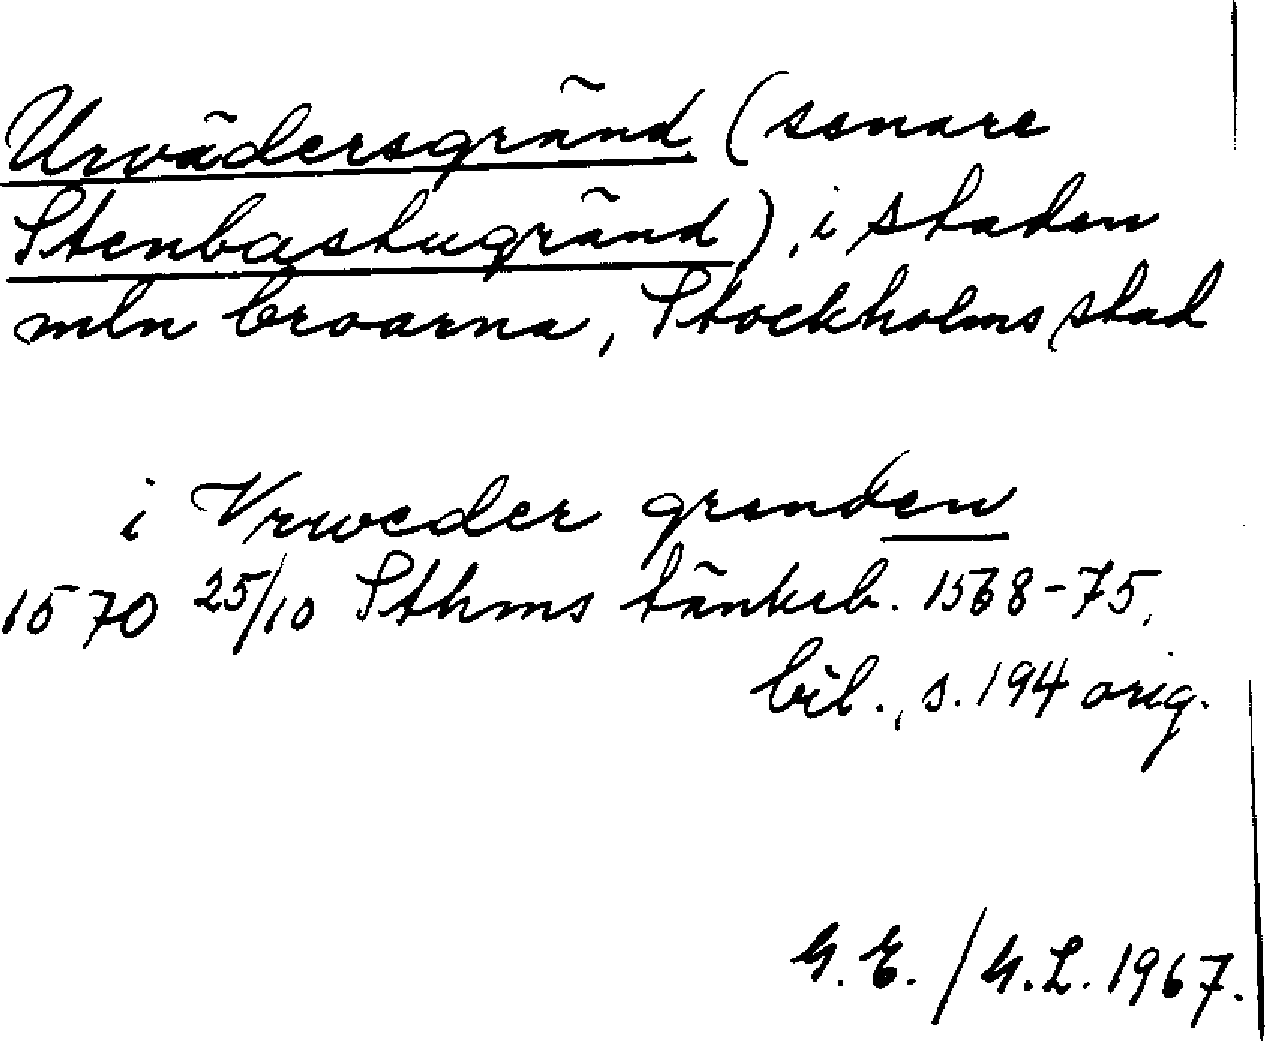 Urvädersgränd (senare
Stenbastugränd), i staden
mln broarna, Stockholms stad
i Vrweder grenden
1570 25/10 Sthms tänkeb. 1568-75,
bil., s. 194 orig.
G.E./G.L. 1967.